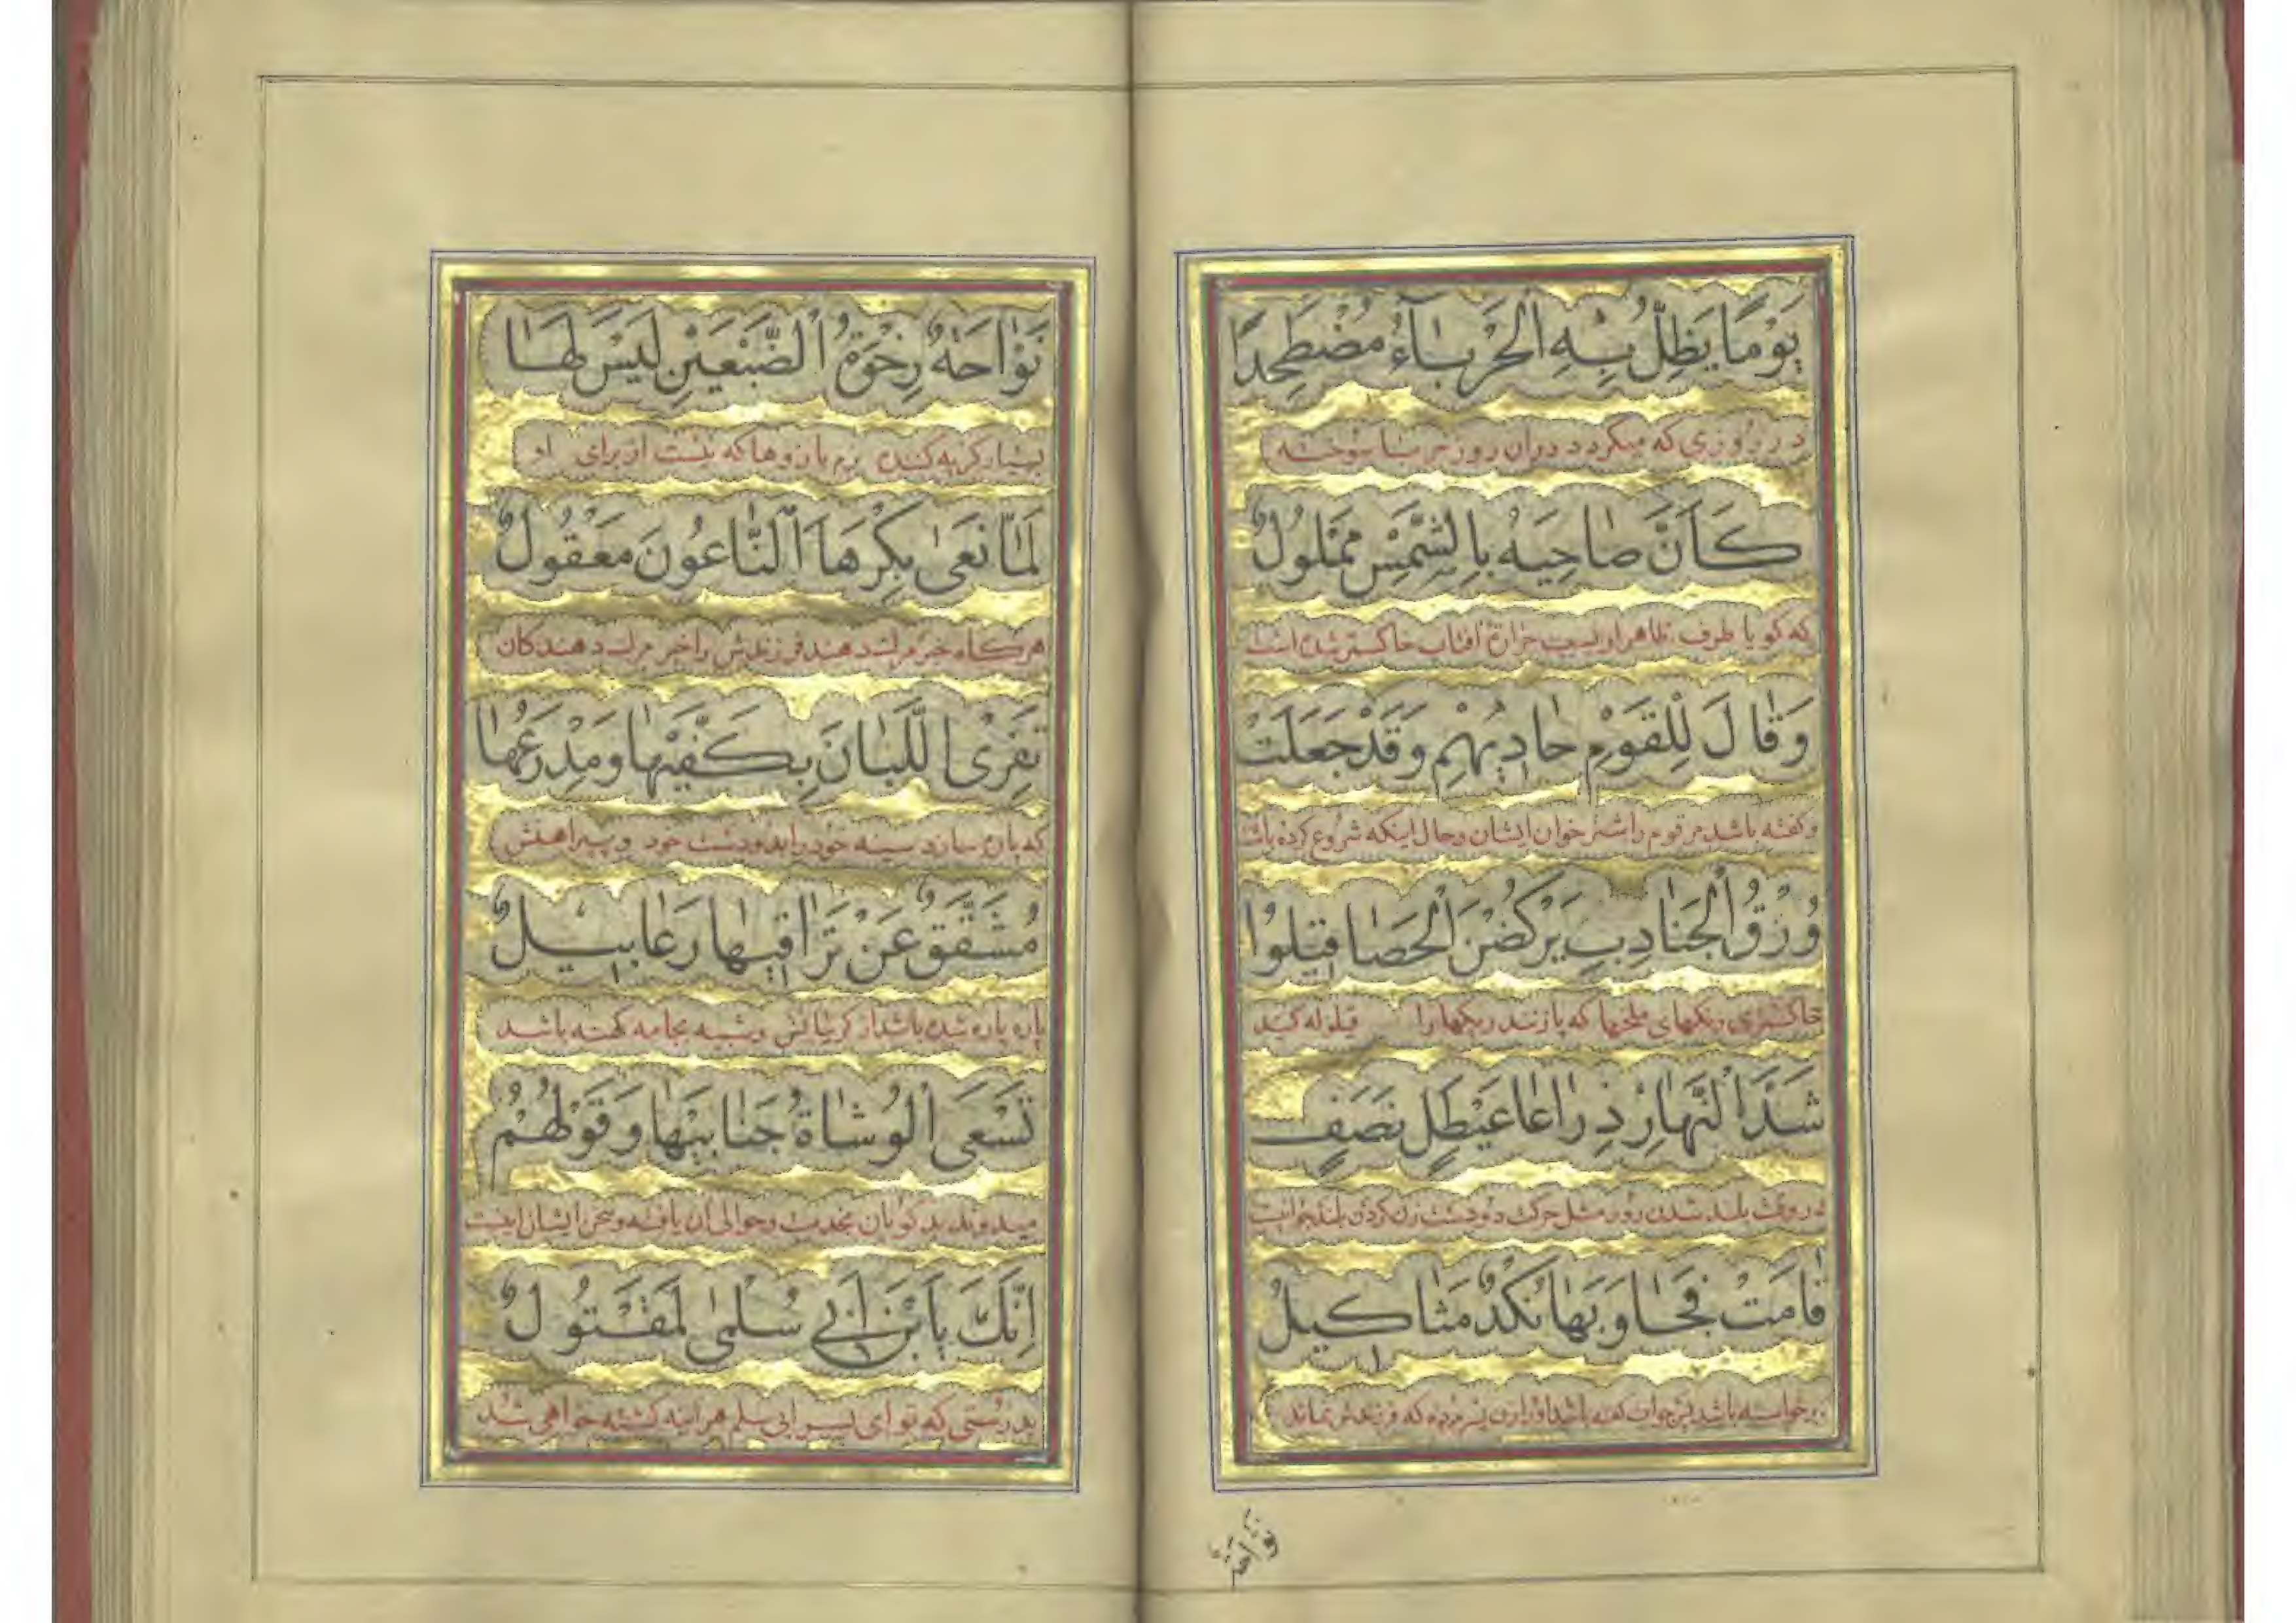 يَوْمًا يَظِلُّ بِهِ الْحَرْبَاءُ مُضْطَخِدًا
در روزی که میگردد دران روز حربا سوخته
كَأَنَّ ضاحِيَهُ بِالشَّمْسِ مَمْلُولٌ
که کویا طرف ظاهر او بسبب حرارة افتاب خاکستر شده است
وَقالَ لِلْقَوْمِ حادِيهِمْ وَقَدْ جَعَلَتْ
وکفته باشد مر قوم را شتر خوان ایشان وحال اینکه شروع کرده باشد
وُرْقُ الْجَنادِبِ يَرْكُضْنَ الْحَصا قِيلُوا
خاکستری رنکهای ملخها که بازنند ریکها را قیلوله کنید
شَدَّ النَّهارِ ذِراعا عَيْطَلٍ نَصَفٍ
در وقت بلند شدن روز مثل حرکت دو دست زن کردن بلند
قامَتْ فَجاوَبَها نُكْدٌ مَثاكِيلُ
برخواسته باشد پس جواب کفته باشد او را زن پسر مرده که فرزندش نماند
نواحة
نَوّاحَةٌ رِخْوَةُ الضَّبْعَيْنِ لَيْسَ لَها
بسیار کریه کننده نرم بازوها که نیست از برای او
لَمّا نَعىٰ بِكْرَهَا النّاعُونَ مَعْقُولٌ
هرکاه خبر مرك دهند فرزندش را خبر مرك دهندکان
تَفْرِى اللَّبانَ بِكَفَّيْها وَمِدْرَعُها
که پاره سازد سینه خود را بدو دست خود و پیراهنش
مُشَقَّقٌ عَنْ تَراقِيها رَعابِيلٌ
پاره پاره شده باشد از کریبانش وشبیه بجامه کهنه باشد
تَسْعَى الْوُشاةُ جَنابَيْها وَقَوْلُهُمُ
میدوند بد کویان بخدمت وحوالی ان یافته وسخن ایشان اینست
اِنَّكَ يَا بْنَ اَبي سُلْمىٰ لَمَقْتُولٌ
بدرستی که تو ای پسر ابی سلمی هراینه کشته خواهی شد